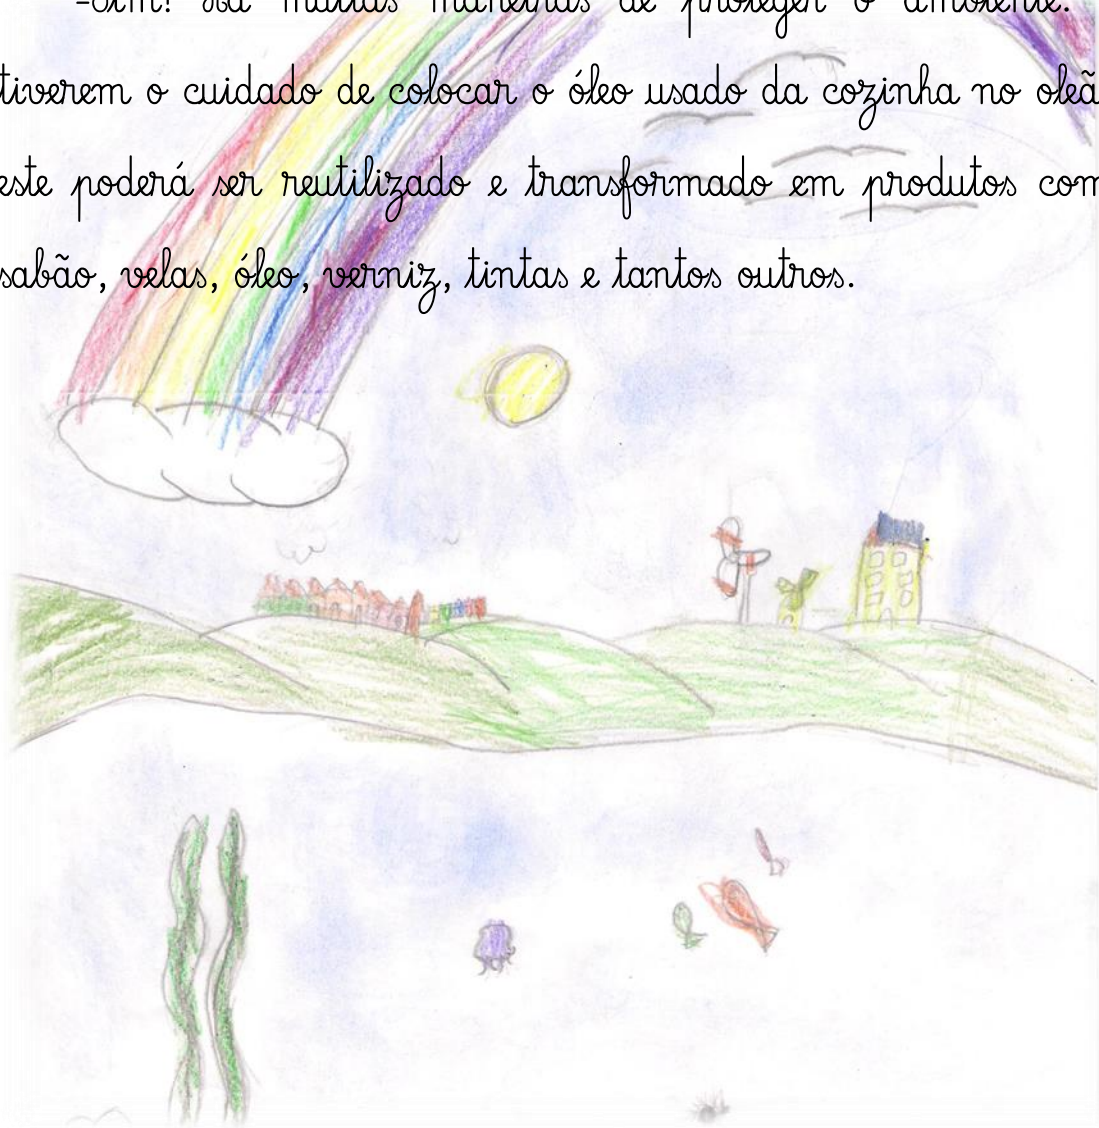 -Sim! Há muitas maneiras de proteger o ambiente.
tiverem o cuidado de colocar o óleo usado da cozinha no oleã
este poderá ser reutilizado e transformado em produtos com
sabão, velas, óleo, verniz, tintas e tantos outros.